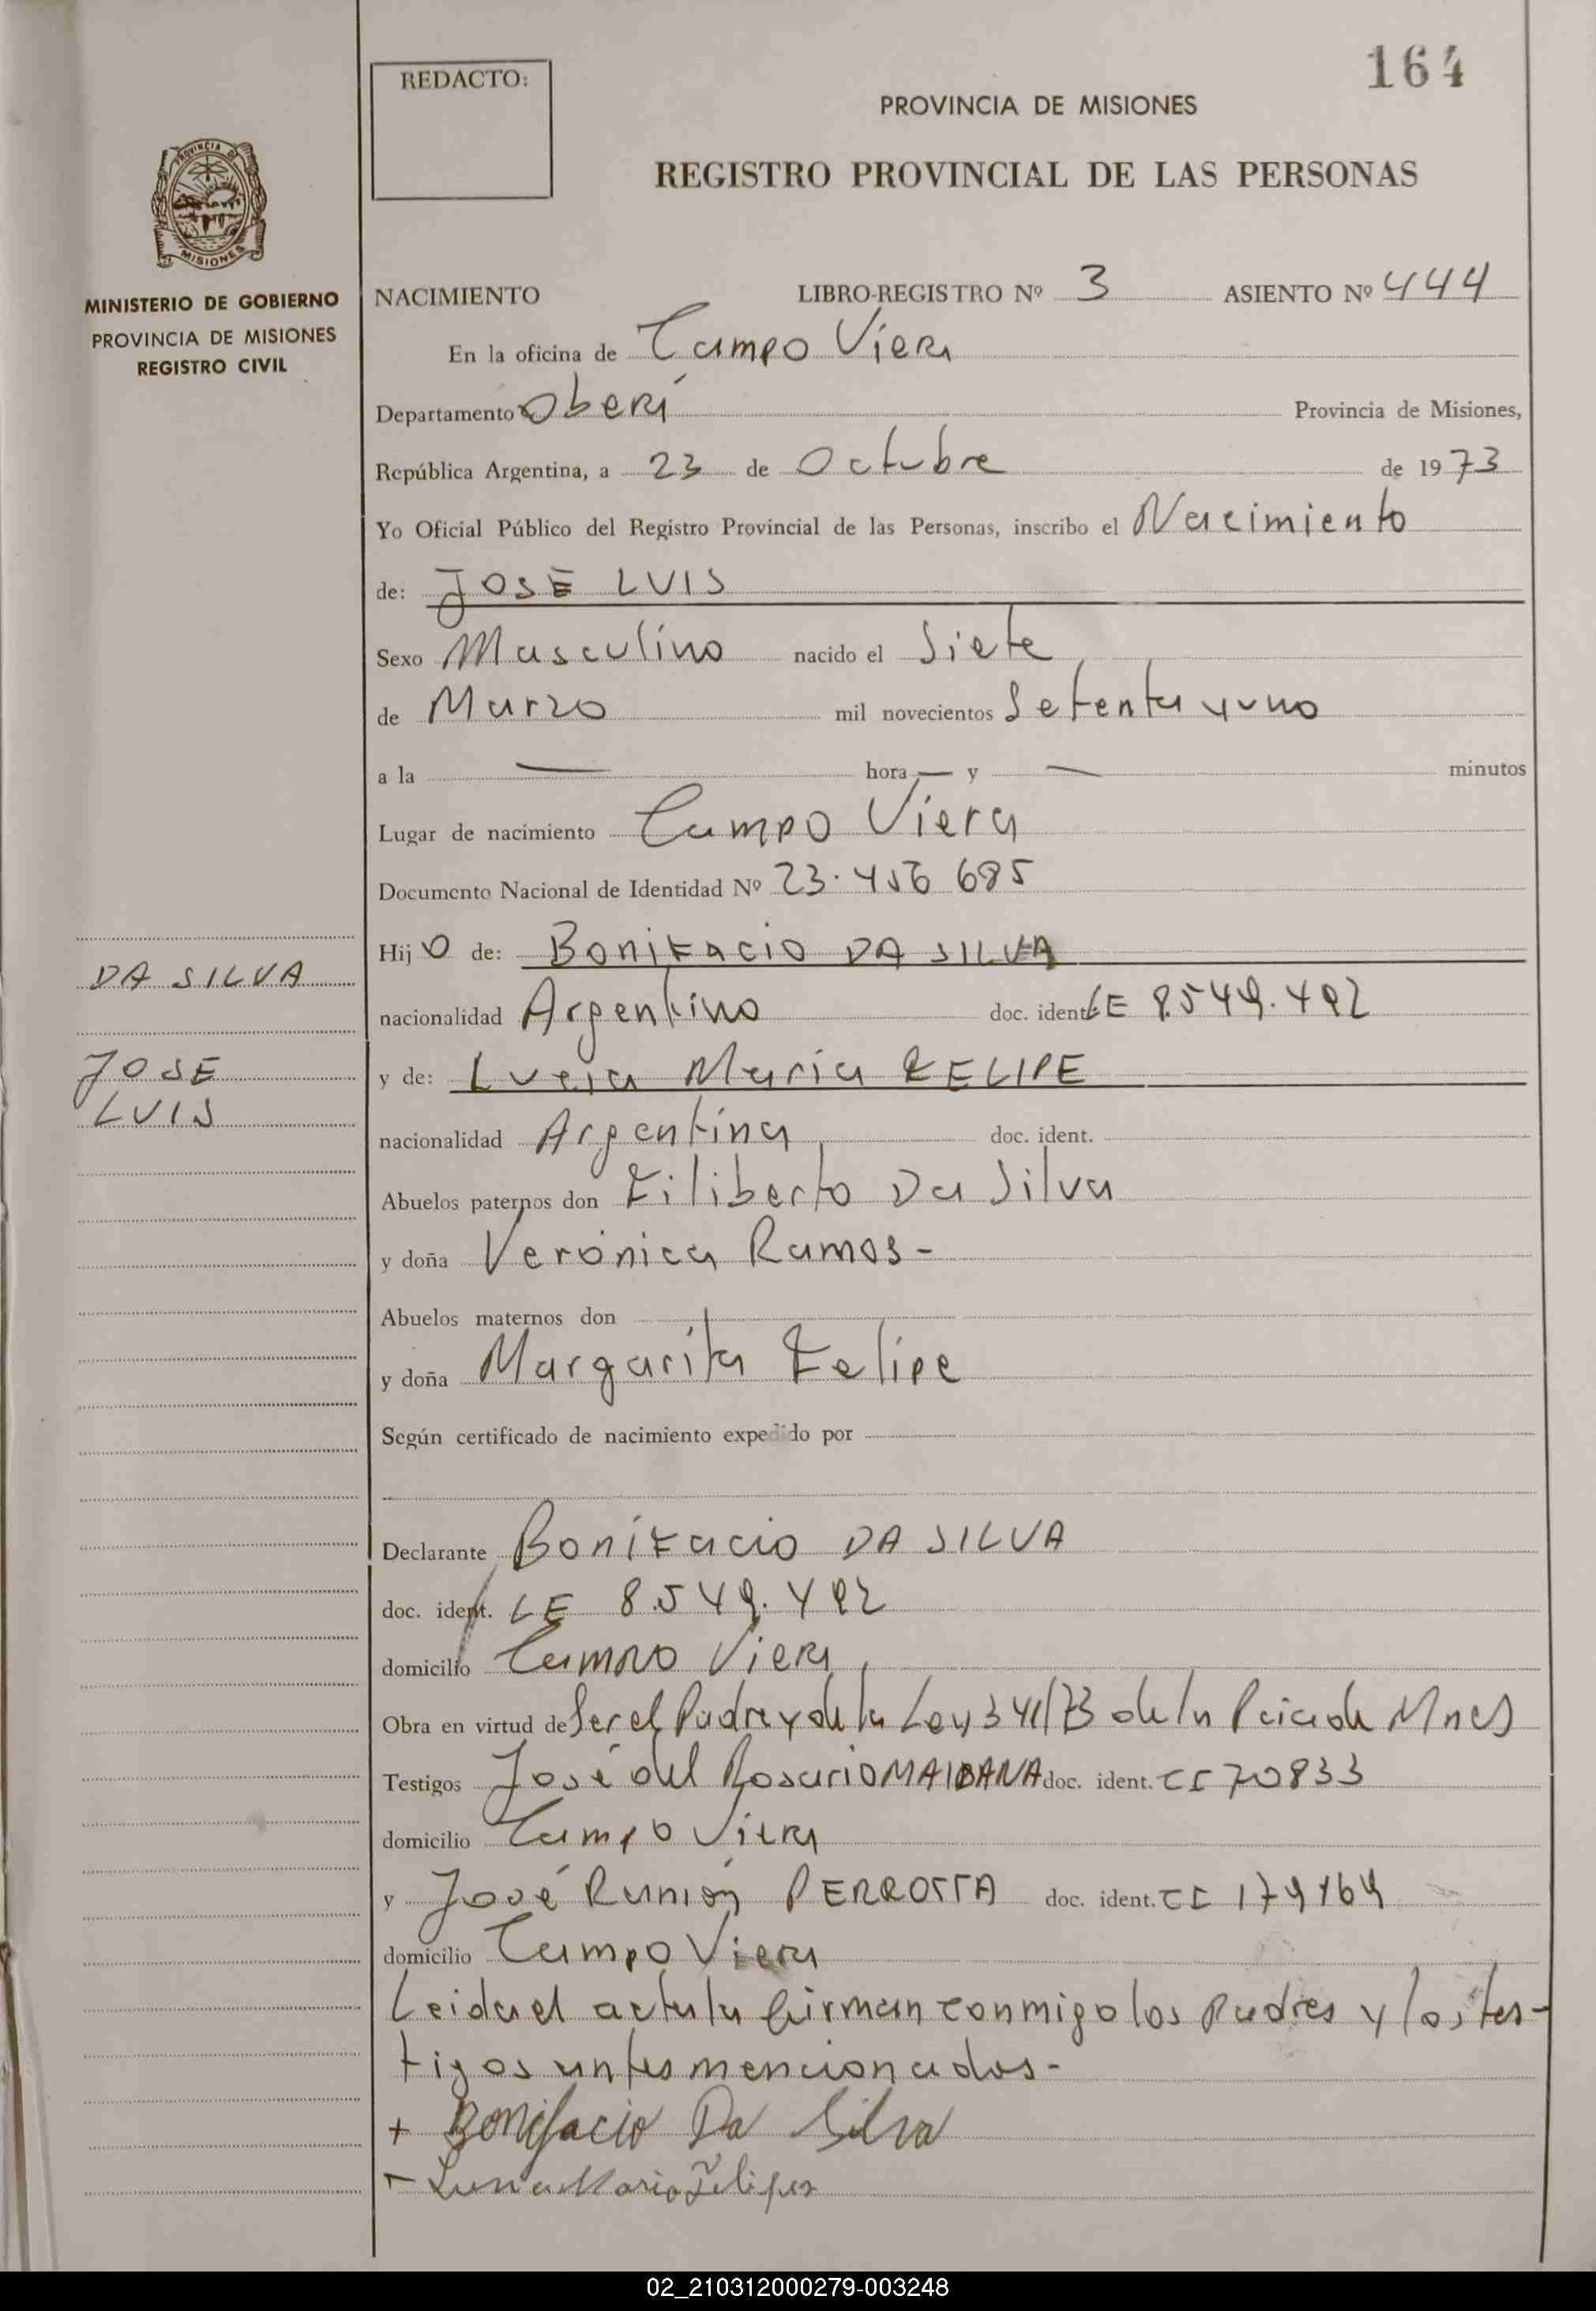 164
REDACTO:
PROVINCIA DE MISIONES
REGISTRO PROVINCIAL DE LAS PERSONAS
PROVINCIA DE
MISIONES
MINISTERIO DE GOBIERNO
PROVINCIA DE MISIONES
REGISTRO CIVIL
NACIMIENTO LIBRO-REGISTRO Nº 3 ASIENTO Nº 444
En la oficina de Campo Viera
Departamento Oberá Provincia de Misiones,
República Argentina, a 23 de Octubre de 1973
Yo Oficial Público del Registro Provincial de las Personas, inscribo el Nacimiento
de: JOSE LUIS
Sexo Masculino nacido el Siete
de Marzo mil novecientos Setenta y uno
a la — hora — y — minutos
Lugar de nacimiento Campo Viera
Documento Nacional de Identidad Nº 23.456 685
Hijo de: Bonifacio DA SILVA
DA SILVA
nacionalidad Argentino doc. ident. LE 8.549.492
JOSE
LUIS
y de: Lucia Maria FELIPE
nacionalidad Argentina doc. ident.
Abuelos paternos don Filiberto Da Silva
y doña Verónica Ramos -
Abuelos maternos don
y doña Margarita Felipe
Según certificado de nacimiento expedido por
Declarante Bonifacio DA SILVA
doc. ident. LE 8.549.492
domicilio Campo Viera
Obra en virtud de Ser el Padre y de la Ley 341/73 de la Pcia de Mnes
Testigos José del Rosario doc. ident. CI 70833
domicilio Campo Viera
y José Ramón PERROTTA doc. ident. CI 174164
domicilio Campo Viera
Leida el acta la firman conmigo los padres y los tes-
tigos antes mencionados-
+ Bonifacio Da Silva
- Maria Felipe
02_210312000279-003248